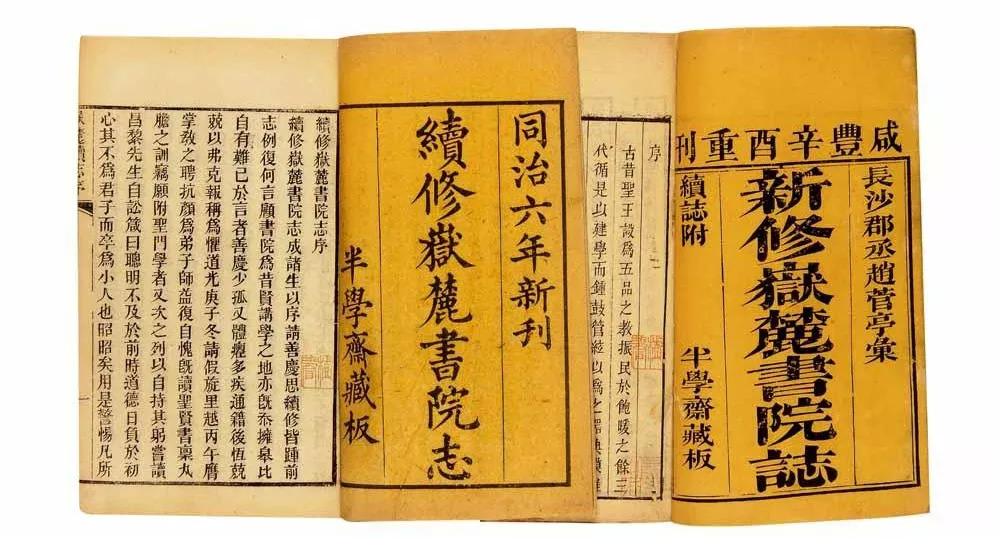 咸豐辛酉重刊
長沙郡丞趙菅亭彙
新修嶽麓書院誌
續誌附
半學齋藏板
序
古昔聖王設爲五品之教振民於飽暖之餘三
代循是以建學而鍾鼓管絃以爲之器典
同治六年新刊
續修嶽麓書院志
半學齋藏板
續修嶽麓書院志序
續修嶽麓書院志成諸生以序請善慶思續修皆踵前
志例復何言顧書院爲昔賢講學之地亦旣忝擁皋比
自有難已於言者善慶少孤又體癯多疾通籍後恆兢
兢以弗克報稱爲懼道光庚子冬請假旋里越丙午膺
掌敎之聘抗顏爲弟子師益復自愧旣讀聖賢書稟丸
膽之訓竊願附聖門學者又次之列以自持其躬嘗讀
昌黎先生自訟箴曰聰明不及於前時道德日負於初
心其不爲君子而卒爲小人也昭昭矣用是警惕凡所